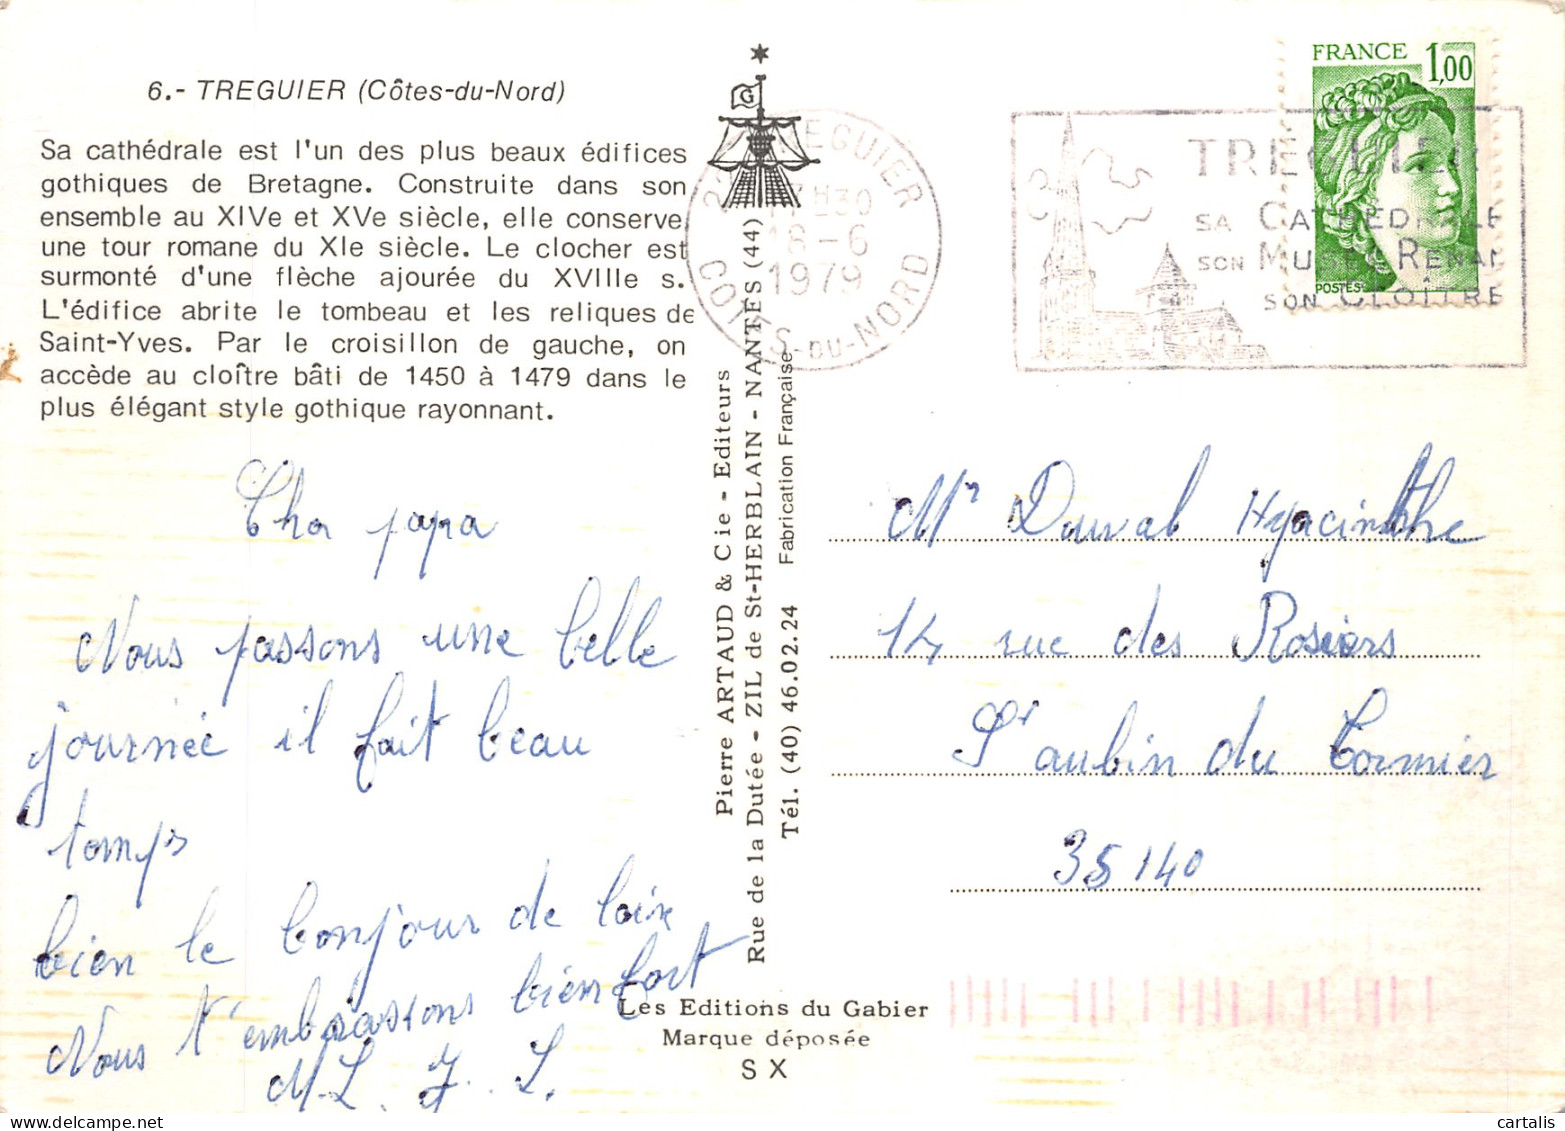 6.- TREGUIER (Côtes-du-Nord)
Sa cathédrale est l'un des plus beaux édifices
gothiques de Bretagne. Construite dans son
ensemble au XIVe et XVe siècle, elle conserve
une tour romane du XIe siècle. Le clocher est
surmonté d'une flèche ajourée du XVIIIe s.
L'édifice abrite le tombeau et les reliques de
Saint-Yves. Par le croisillon de gauche, on
accède au cloître bâti de 1450 à 1479 dans le
plus élégant style gothique rayonnant.
Cher papa
Nous passons une belle
journée il fait beau
temps
bien le bonjour de loin
Nous t'embrassons bien fort
M.L. J. L.
G
Pierre ARTAUD & Cie - Editeurs
Rue de la Dutée - ZIL de St-HERBLAIN - NANTES (44)
Tél. (40) 46.02.24 Fabrication Française
Les Editions du Gabier
Marque déposée
S X
TREGUIER
17H30
18-6
1979
COTES-DU-NORD
TREGUIER
SA CATHEDRALE
SON MUSEE RENAN
SON CLOITRE
FRANCE 1,00
POSTES
Mr Duval Hyacinthe
14 rue des Rosiers
St aubin du Cormier
35140
cartalis